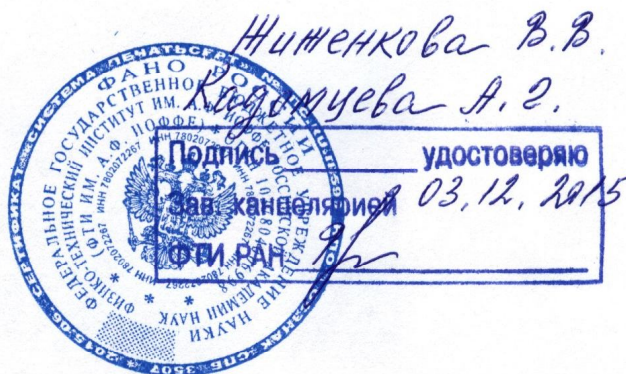 Жиженкова В.В.
Кадомцева А.Г.
Подпись удостоверяю
Зав. канцелярией 03.12.2015
ФТИ РАН
ФАНО РОССИИ
ФЕДЕРАЛЬНОЕ ГОСУДАРСТВЕННОЕ БЮДЖЕТНОЕ УЧРЕЖДЕНИЕ НАУКИ
ФИЗИКО-ТЕХНИЧЕСКИЙ ИНСТИТУТ ИМ. А.Ф. ИОФФЕ РОССИЙСКОЙ АКАДЕМИИ НАУК
(ФТИ ИМ. А.Ф. ИОФФЕ)
ИНН 7802072267